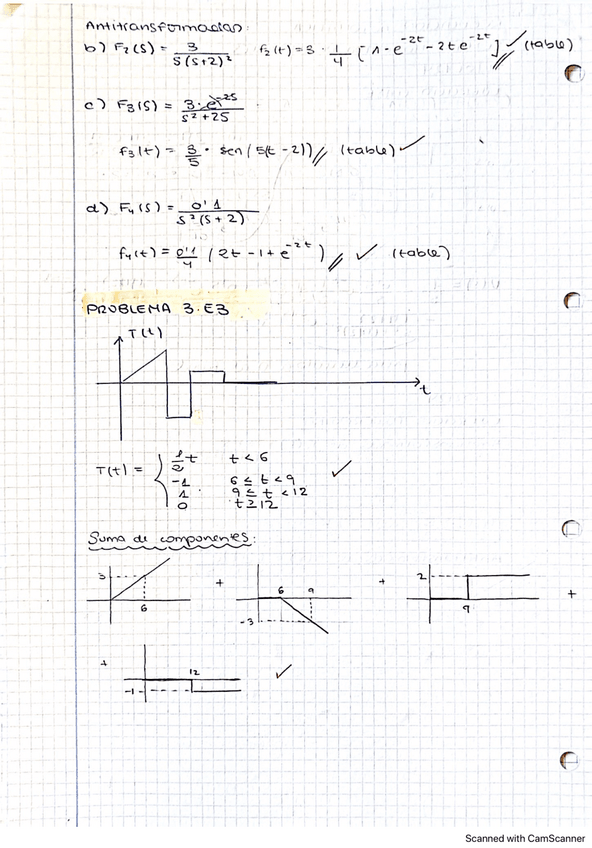 Antitransformadas:
b) F₂(s) = 3 / s(s+2)²   f₂(t) = 3 · 1/4 [1 - e^-2t - 2te^-2t] ✓ (table)
c) F₃(s) = 3·e^-2s / s²+25
f₃(t) = 3/5 · sen(5(t-2)) // (table) ✓
d) F₄(s) = 0'1 / s²(s+2)
f₄(t) = 0'1/4 (2t - 1 + e^-2t) // ✓ (table)
PROBLEMA 3.E3
T(t)
t
T(t) = { 1/2 t   t < 6 ✓
-1   6 ≤ t < 9
1   9 ≤ t < 12
0   t ≥ 12
Suma de componentes:
3   6   +   6   9   -3   +   2   9   +
+   12   -1   ✓
Scanned with CamScanner